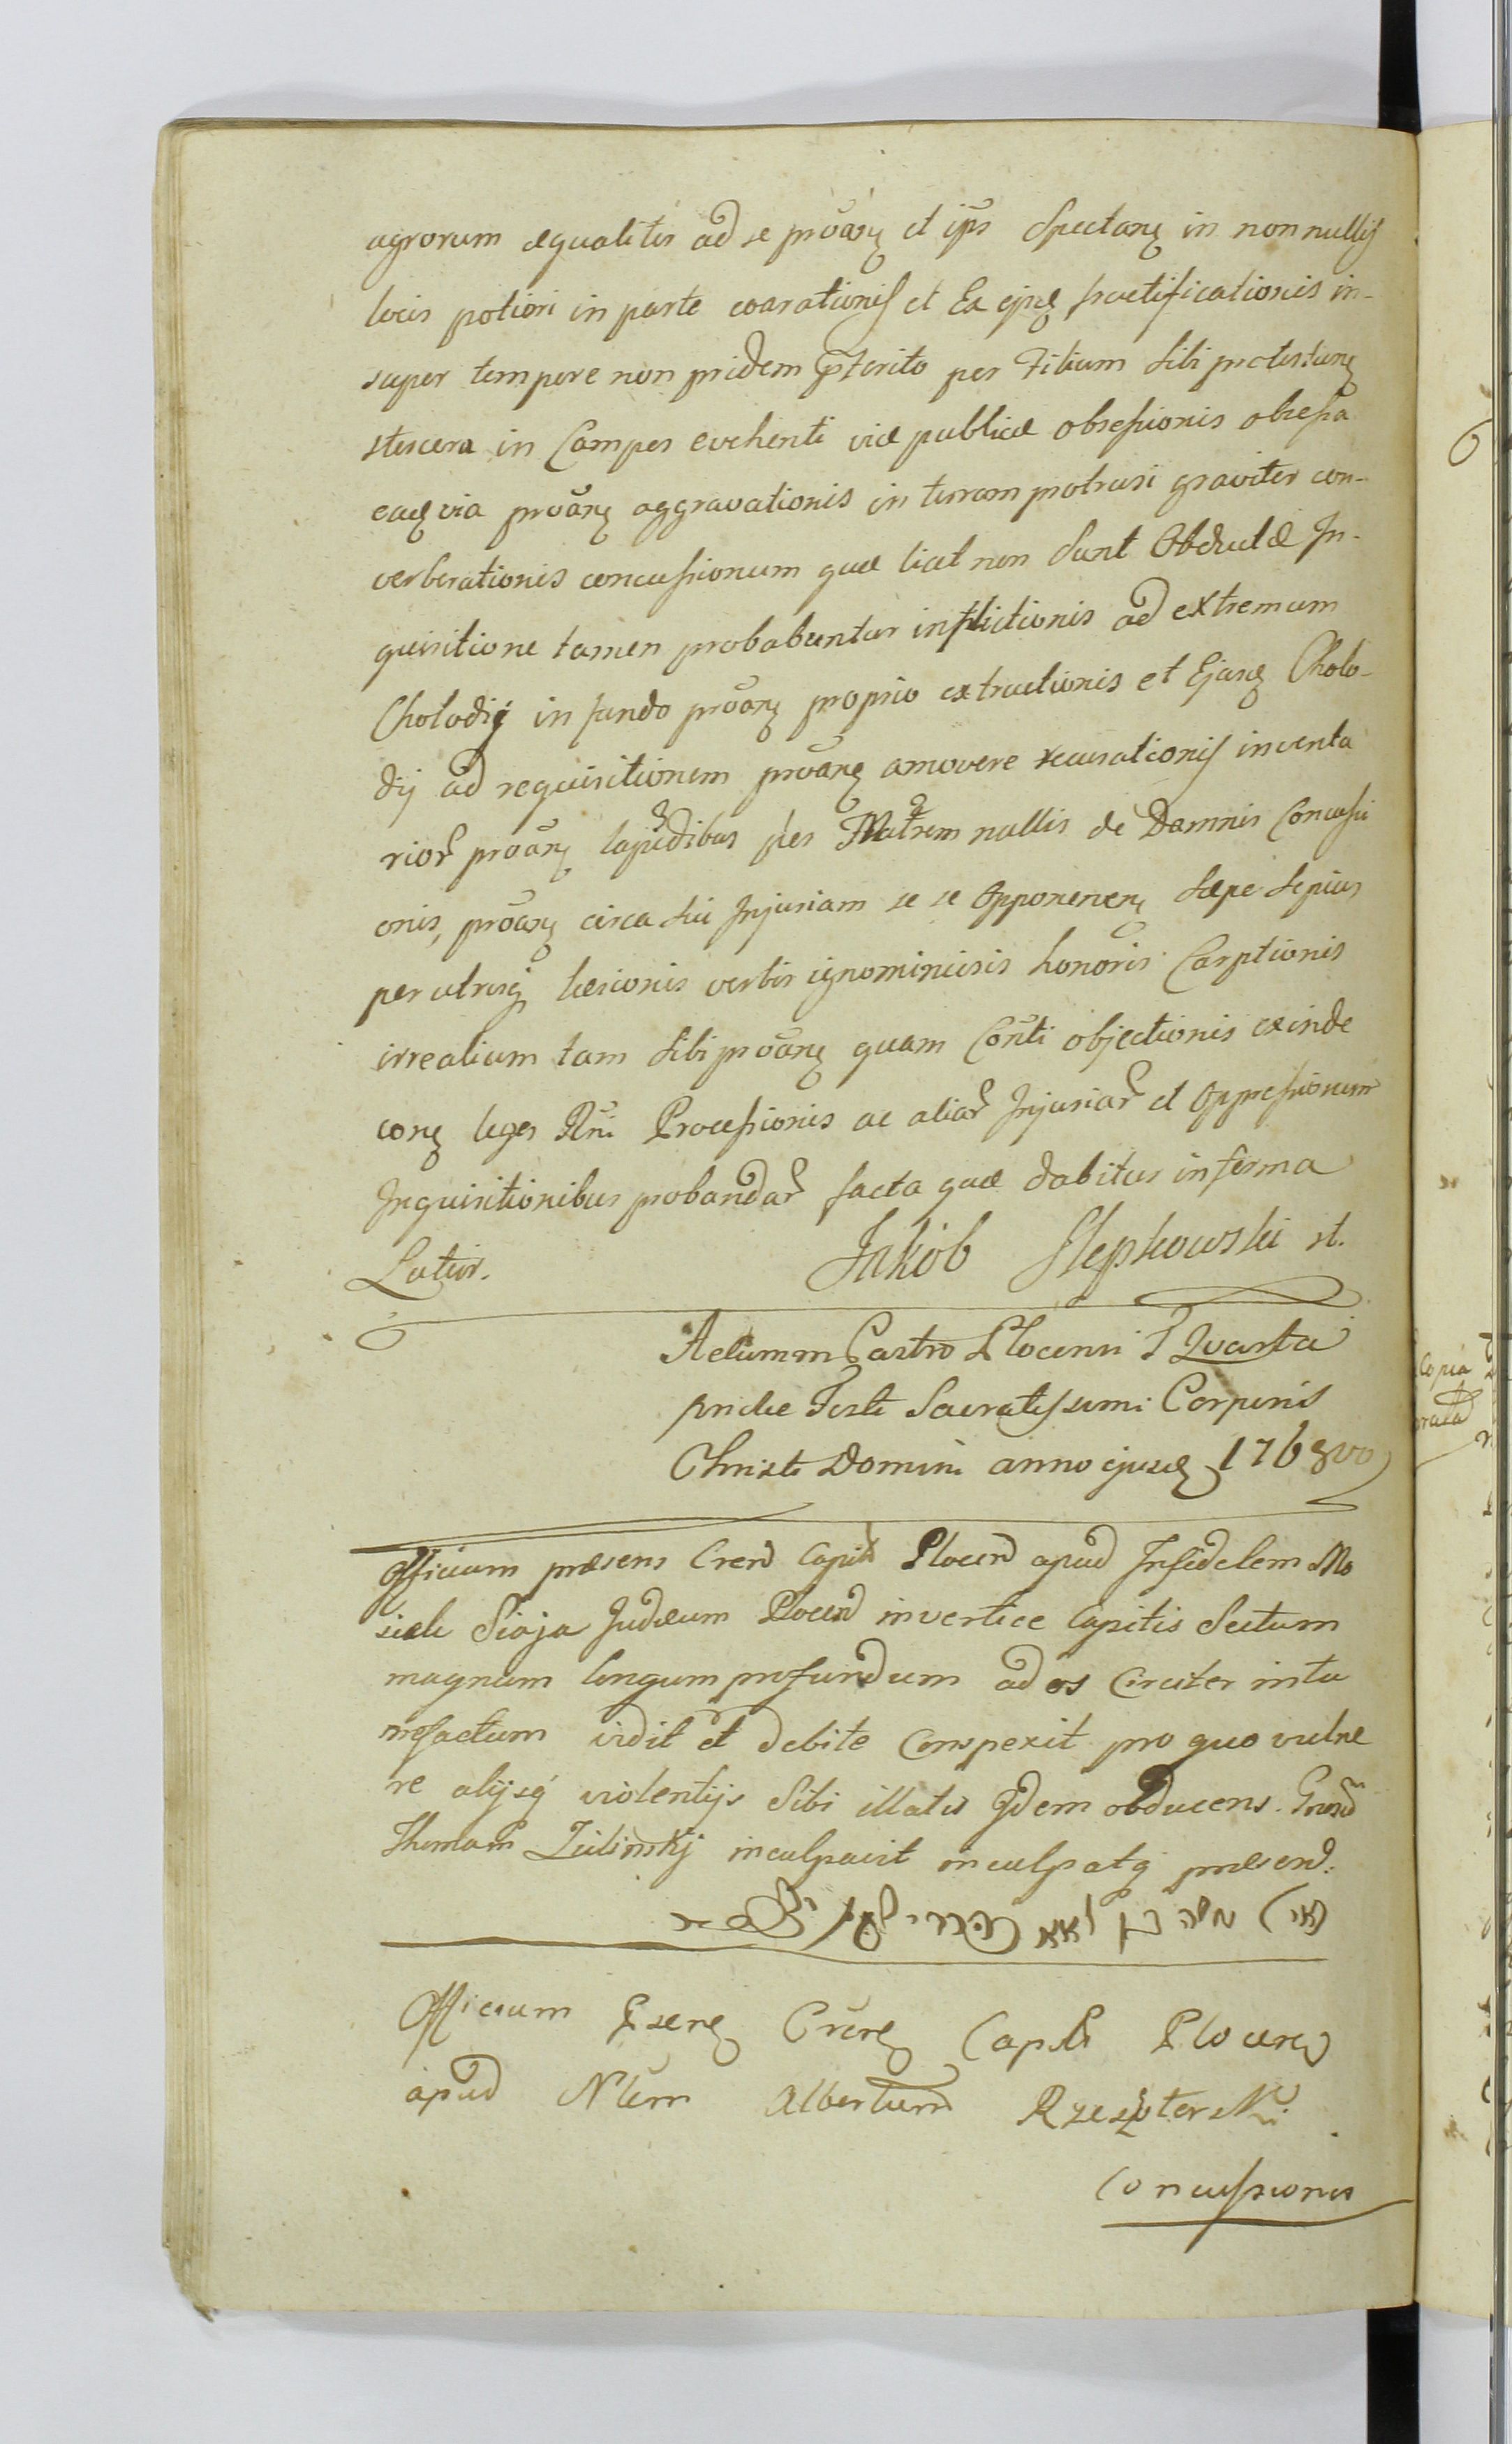 agrorum æqualiter ad se prõvãnę et ips̃ Spectanę in non nullis
locis potiori in parte coarationis et Ea ejusdę fructificationis in-
super tempore non pridem p̃terito per Filium Sibi protestanę
stercora in Campos evehenti viæ publicæ obsessionis obsessa
eadę via prõvãnę aggravationis in terram protrusi graviter con-
verberationis concussionum quæ licet non Sunt Obductæ In-
quisitione tamen probabuntur inflictionis ad extremum
Chołodij in fundo prõvãnę proprio extructionis et Ejusdę Choło-
dij ad requisitionem prõvãnę amovere recusationis inventa
rior̃ prõvãnę lapidibus per Matrem nullis de Damnis Concussi
onis, prõvãnę circa Sui Injuriam se se Opponenenę Sæpe Sepius
per utrũsq læsionis verbis ignominiosis honoris Carptionis
irrealium tam Sibi prõvãnę quam Cõnti objectionis exinde
conę leges Rñi Processionis ac aliar̃ Injuriar̃ et Oppressionum
Inquisitionibus probandar̃ facta quæ dabitur in forma
Latior. Jakob Slepkowski st.
Actum in Castro Plocensi F Quarta
pridie Festi Sacratissimi Corporis
Christi Domini anno ejusdę 1768vo
Officium præsens Cren̄ Capit̃ Plocen̄ apud Infidelem Mo
siek Siaja Judæum Plocen̄ in vertice Capitis Sectum
magnum longum profundum ad os Circiter intu
mefactum vidit et debite Conspexit pro quo vulne
re alijsq violentijs Sibi illatis Idem obducens. Gnosũ
Thomam Zielinskj inculpavit inculpatq præsen̄.
Officium P̃senę Crẽnę Capit̃ Plocen̄
apud Nlẽm Albertum
Concussionis